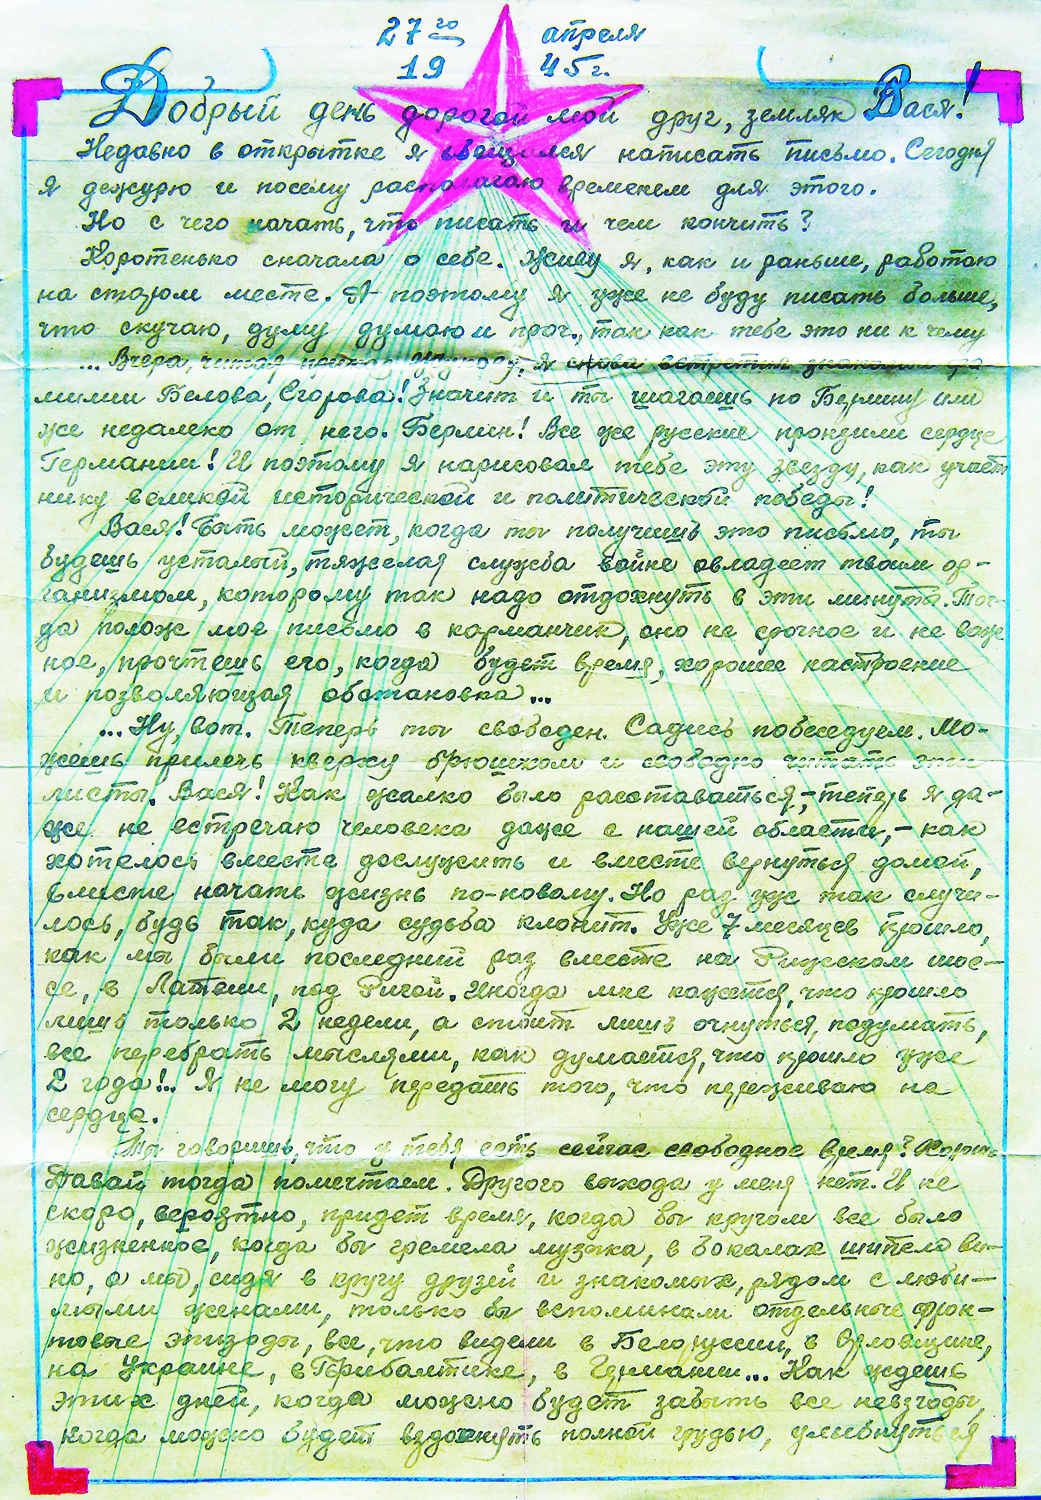 27го апреля
1945г.
Добрый день дорогой мой друг, земляк Вася!
Недавно в открытке я обещался написать письмо. Сегодня
я дежурю и посему располагаю временем для этого.
Но с чего начать, что писать и чем кончить?
Коротенько сначала о себе. Живу я, как и раньше, работаю
на старом месте. А поэтому я уже не буду писать больше,
что скучаю, думу думаю и проч., так как тебе это ни к чему
... Вчера, читая приказ я снова встретил знакомые фа-
милии Белова, Егорова! Значит и ты шагаешь по Берлину или
уже недалеко от него. Берлин! Все же русские пронзили сердце
Германии! И поэтому я нарисовал тебе эту звезду, как участ
нику великой исторической и политической победы!
Вася! Быть может, когда ты получишь это письмо, ты
будешь усталый, тяжелая служба войне овладеет твоим ор-
ганизмом, которому так надо отдохнуть в эти минуты. Тог-
да полож мое письмо в карманчик, оно не срочное и не важ
ное, прочтешь его, когда будет время, хорошее настроение
и позволяющая обстановка...
...Ну, вот. Теперь ты свободен. Садись побеседуем. Мо-
жешь прилечь кверху брюшком и свободно читать эти
листы. Вася! Как жалко было расставаться, - теперь я да-
же не встречаю человека даже с нашей области, - как
хотелось вместе дослужить и вместе вернуться домой,
вместе начать жизнь по-новому. Но раз уж так случи-
лось, будь так, куда судьба клонит. Уже 7 месяцев прошло,
как мы были последний раз вместе на Рижском шос-
се, в Латвии, под Ригой. Иногда мне кажется, что прошло
лишь только 2 недели, а стоит лишь очнуться, подумать,
все перебрать мыслями, как думается, что прошло уже
2 года!.. Я не могу передать того, что переживаю на
сердце.
Ты говоришь, что у тебя есть сейчас свободное время? Хорошо
Давай тогда помечтаем. Другого выхода у меня нет. И не
скоро, вероятно, придет время, когда бы кругом все было
жизненное, когда бы гремела музыка, в бокалах шипело ви-
но, а мы, сидя в кругу друзей и знакомых, рядом с люби-
мыми женами, только бы вспоминали отдельные фрон-
товые эпизоды, все, что видели в Белоруссии, в Орловщине,
на Украине, в Прибалтике, в Германии... Как ждешь
этих дней, когда можно будет забыть все невзгоды,
когда можно будет вздохнуть полной грудью, улыбнуться